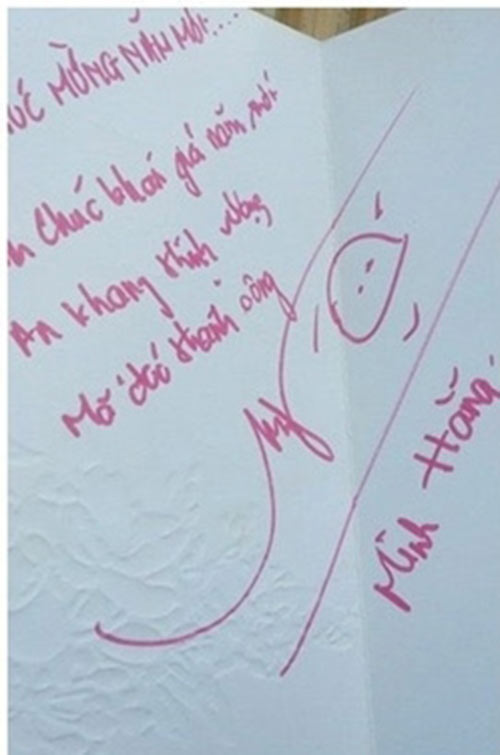 ÚC MỪNG NĂM MỚI....
Chúc khán giả năm mới
An khang thịnh vượng
Mã đáo thành công
Minh Hằng